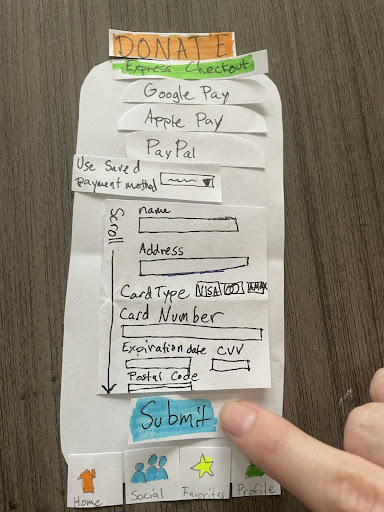 DONATE
Express Checkout
Google Pay
Apple Pay
PayPal
Use Saved
payment method
Scroll
name
Address
Card Type VISA AMAX
Card Number
Expiration date CVV
Postal Code
Submit
Home Social Favorites Profile